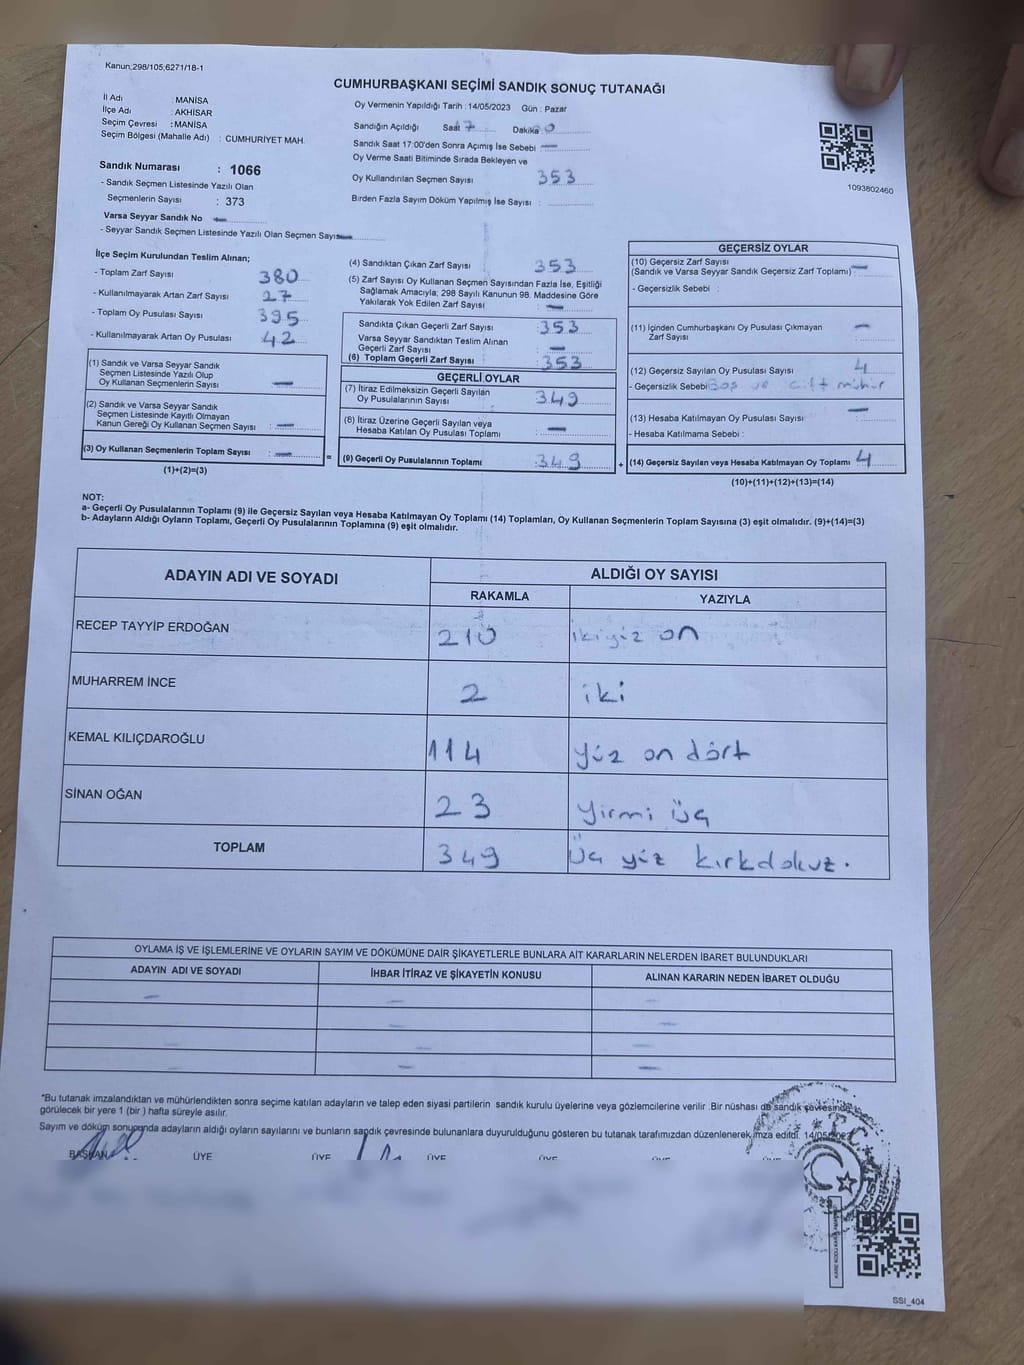 Kanun:298/105,6271/18-1
CUMHURBAŞKANI SEÇİMİ SANDIK SONUÇ TUTANAĞI
İl Adı : MANİSA
İlçe Adı : AKHİSAR
Seçim Çevresi : MANİSA
Seçim Bölgesi (Mahalle Adı) : CUMHURİYET MAH.
Oy Vermenin Yapıldığı Tarih : 14/05/2023 Gün : Pazar
Sandığın Açıldığı Saat 7 Dakika
Sandık Saat 17:00'den Sonra Açımış İse Sebebi —
Oy Verme Saati Bitiminde Sırada Bekleyen ve
Oy Kullandırılan Seçmen Sayısı 353
Birden Fazla Sayım Döküm Yapılmış İse Sayısı :
1093802460
Sandık Numarası : 1066
- Sandık Seçmen Listesinde Yazılı Olan
Seçmenlerin Sayısı : 373
Varsa Seyyar Sandık No —
- Seyyar Sandık Seçmen Listesinde Yazılı Olan Seçmen Sayısı —
İlçe Seçim Kurulundan Teslim Alınan;
- Toplam Zarf Sayısı 380
- Kullanılmayarak Artan Zarf Sayısı 27
- Toplam Oy Pusulası Sayısı 395
- Kullanılmayarak Artan Oy Pusulası 42
(1) Sandık ve Varsa Seyyar Sandık
Seçmen Listesinde Yazılı Olup
Oy Kullanan Seçmenlerin Sayısı : —
(2) Sandık ve Varsa Seyyar Sandık
Seçmen Listesinde Kayıtlı Olmayan
Kanun Gereği Oy Kullanan Seçmen Sayısı : —
(3) Oy Kullanan Seçmenlerin Toplam Sayısı : —
(1)+(2)=(3)
(4) Sandıktan Çıkan Zarf Sayısı 353
(5) Zarf Sayısı Oy Kullanan Seçmen Sayısından Fazla İse, Eşitliği
Sağlamak Amacıyla; 298 Sayılı Kanunun 98. Maddesine Göre
Yakılarak Yok Edilen Zarf Sayısı : —
Sandıkta Çıkan Geçerli Zarf Sayısı : 353
Varsa Seyyar Sandıktan Teslim Alınan
Geçerli Zarf Sayısı —
(6) Toplam Geçerli Zarf Sayısı 353
GEÇERLİ OYLAR
(7) İtiraz Edilmeksizin Geçerli Sayılan
Oy Pusulalarının Sayısı 349
(8) İtiraz Üzerine Geçerli Sayılan veya
Hesaba Katılan Oy Pusulası Toplamı —
= (9) Geçerli Oy Pusulalarının Toplamı : 349
GEÇERSİZ OYLAR
(10) Geçersiz Zarf Sayısı
(Sandık ve Varsa Seyyar Sandık Geçersiz Zarf Toplamı) —
- Geçersizlik Sebebi :
(11) İçinden Cumhurbaşkanı Oy Pusulası Çıkmayan
Zarf Sayısı —
(12) Geçersiz Sayılan Oy Pusulası Sayısı 4
- Geçersizlik Sebebi Boş ve çift mühür
(13) Hesaba Katılmayan Oy Pusulası Sayısı —
- Hesaba Katılmama Sebebi :
+ (14) Geçersiz Sayılan veya Hesaba Katılmayan Oy Toplamı 4
(10)+(11)+(12)+(13)=(14)
NOT:
a- Geçerli Oy Pusulalarının Toplamı (9) ile Geçersiz Sayılan veya Hesaba Katılmayan Oy Toplamı (14) Toplamları, Oy Kullanan Seçmenlerin Toplam Sayısına (3) eşit olmalıdır. (9)+(14)=(3)
b- Adayların Aldığı Oyların Toplamı, Geçerli Oy Pusulalarının Toplamına (9) eşit olmalıdır.
ADAYIN ADI VE SOYADI ALDIĞI OY SAYISI
RAKAMLA YAZIYLA
RECEP TAYYİP ERDOĞAN 210 ikiyüz on
MUHARREM İNCE 2 iki
KEMAL KILIÇDAROĞLU 114 yüz on dört
SİNAN OĞAN 23 yirmi üç
TOPLAM 349 Üç yüz kırkdokuz.
OYLAMA İŞ VE İŞLEMLERİNE VE OYLARIN SAYIM VE DÖKÜMÜNE DAİR ŞİKAYETLERLE BUNLARA AİT KARARLARIN NELERDEN İBARET BULUNDUKLARI
ADAYIN ADI VE SOYADI İHBAR İTİRAZ VE ŞİKAYETİN KONUSU ALINAN KARARIN NEDEN İBARET OLDUĞU
*Bu tutanak imzalandıktan ve mühürlendikten sonra seçime katılan adayların ve talep eden siyasi partilerin sandık kurulu üyelerine veya gözlemcilerine verilir .Bir nüshası da sandık çevresinde
görülecek bir yere 1 (bir ) hafta süreyle asılır.
Sayım ve döküm sonunda adayların aldığı oyların sayılarını ve bunların sandık çevresinde bulunanlara duyurulduğunu gösteren bu tutanak tarafımızdan düzenlenerek imza edildi. 14/05/2023
BAŞKAN ÜYE ÜYE ÜYE
SSİ_404